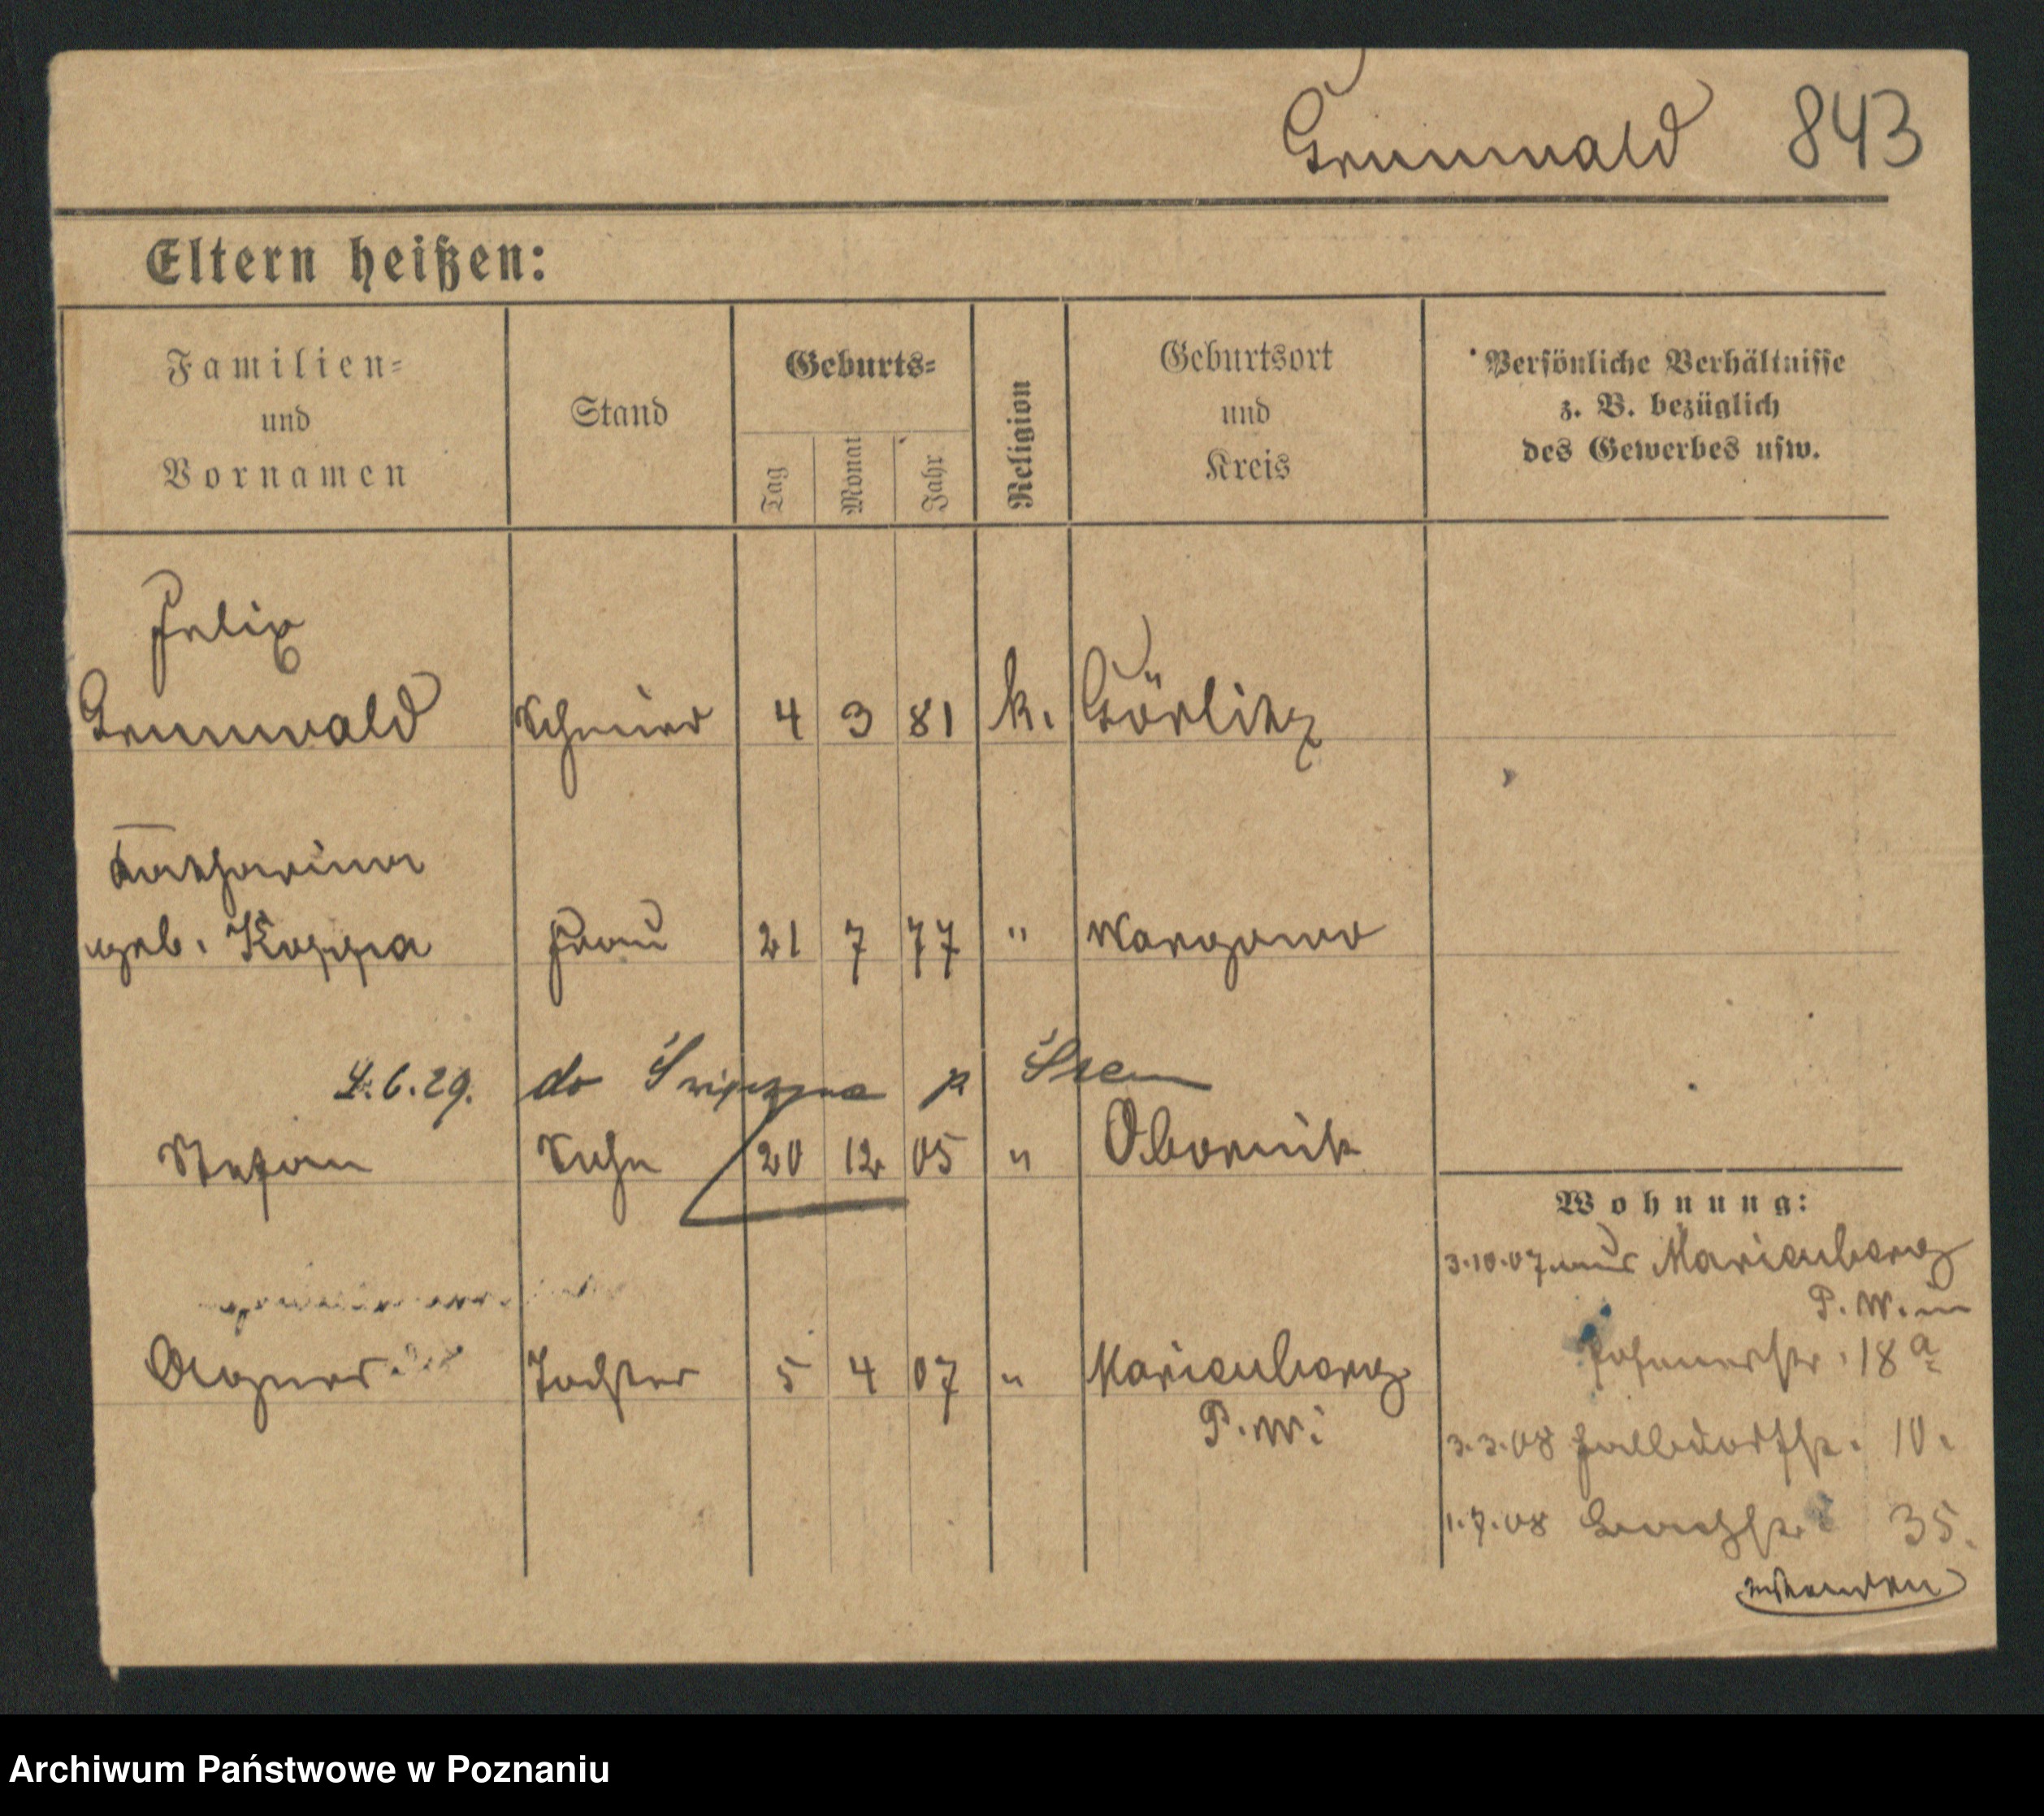 Grunwald 843
Eltern heißen:
Familien=
und
Vornamen
Stand
Geburts=
Tag
Monat
Jahr
Religion
Geburtsort
und
Kreis
Persönliche Verhältnisse
z. B. bezüglich
des Gewerbes usw.
Felix
Grunwald Schmied 4 3 81 k. Görlitz
Katharina
geb. Koppa Frau 21 7 77 " Wargowo
4.6.29. do p Śrem
Stefan Sohn 20 12 05 " Obornik
Wohnung:
3.10.07 aus Marienberg
P. W. in
18a
Agnes Tochter 5 4 07 " Marienberg
P. W.
3.3.08 10.
1.7.08 35.
Archiwum Państwowe w Poznaniu